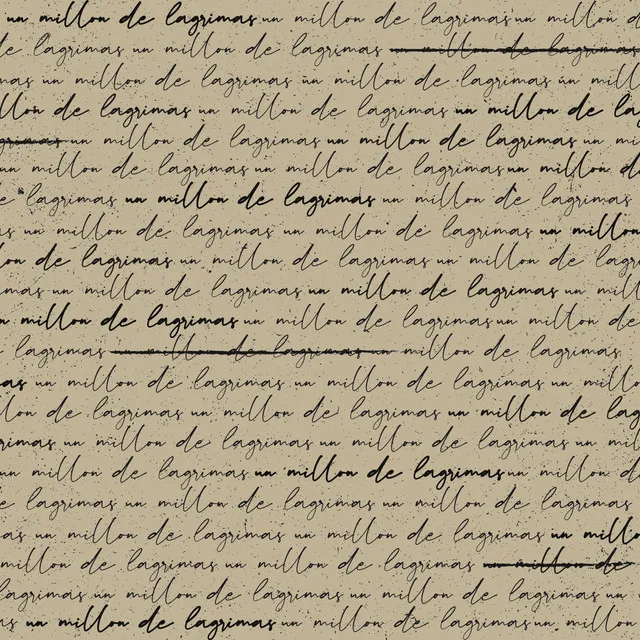 un millon de lagrimas un millon de lagrimas un millon d
de lagrimas un millon de lagrimas un millon de lagrimas
mas un millon de lagrimas un millon de lagrimas un mill
llon de lagrimas un millon de lagrimas un millon de lag
grimas un millon de lagrimas un millon de lagrimas un mi
un millon de lagrimas un millon de lagrimas un millon de
e lagrimas un millon de lagrimas un millon de lagrimas
as un millon de lagrimas un millon de lagrimas un millon
lon de lagrimas un millon de lagrimas un millon de lagr
imas un millon de lagrimas un millon de lagrimas un mil
n millon de lagrimas un millon de lagrimas un millon de
lagrimas un millon de lagrimas un millon de lagrimas
as un millon de lagrimas un millon de lagrimas un millo
lon de lagrimas un millon de lagrimas un millon de lag
rimas un millon de lagrimas un millon de lagrimas un mi
un millon de lagrimas un millon de lagrimas un millon d
e lagrimas un millon de lagrimas un millon de lagrimas
as un millon de lagrimas un millon de lagrimas un millo
millon de lagrimas un millon de lagrimas un millon de
lagrimas un millon de lagrimas un millon de lagrimas un
as un millon de lagrimas un millon de lagrimas un millon